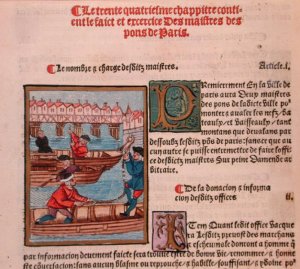 ¶ Le trente quatriesme chappitre conti
ent le faict et exercice Des maistres des
pons de Paris.
¶ Le nombre ⁊ charge desditz maistres.
Article. i.
PRemierement En la ville de
paris aura Deux maistres
des pons de ladicte ville po
montez ⁊ aualer les nefz, ba
teaulx, ⁊ vaisseaulx, tant
montans que deualans par
dessoubz lesditz pōs de paris: sans ce que au
cun autre se puisse entremettre de faire loffi
ce desditz maistres Sur peine Damende ar
bitraire.
¶ De la donacion ⁊ informa
cion desditz offices
ii.
ITem Quant ledit office vacque
ra Lesditz preuost des marchans
⁊ escheuins le donront a homme q̄
par informacion deuement faicte sera trouue estre de bonne vie, renommee, ⁊ honne
ste conuersacion: sans aucun blasme ou reprouche, ⁊ habille, souffisant,